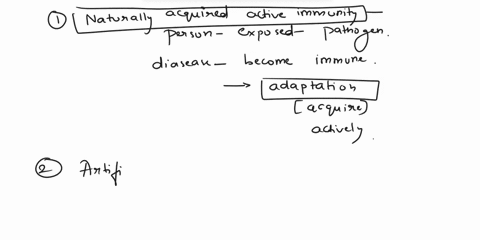 ① Naturally acquired active immunity —
person - exposed - pathogen.
diasease - become immune.
→ adaptation
[acquire)
actively.
② Artifi